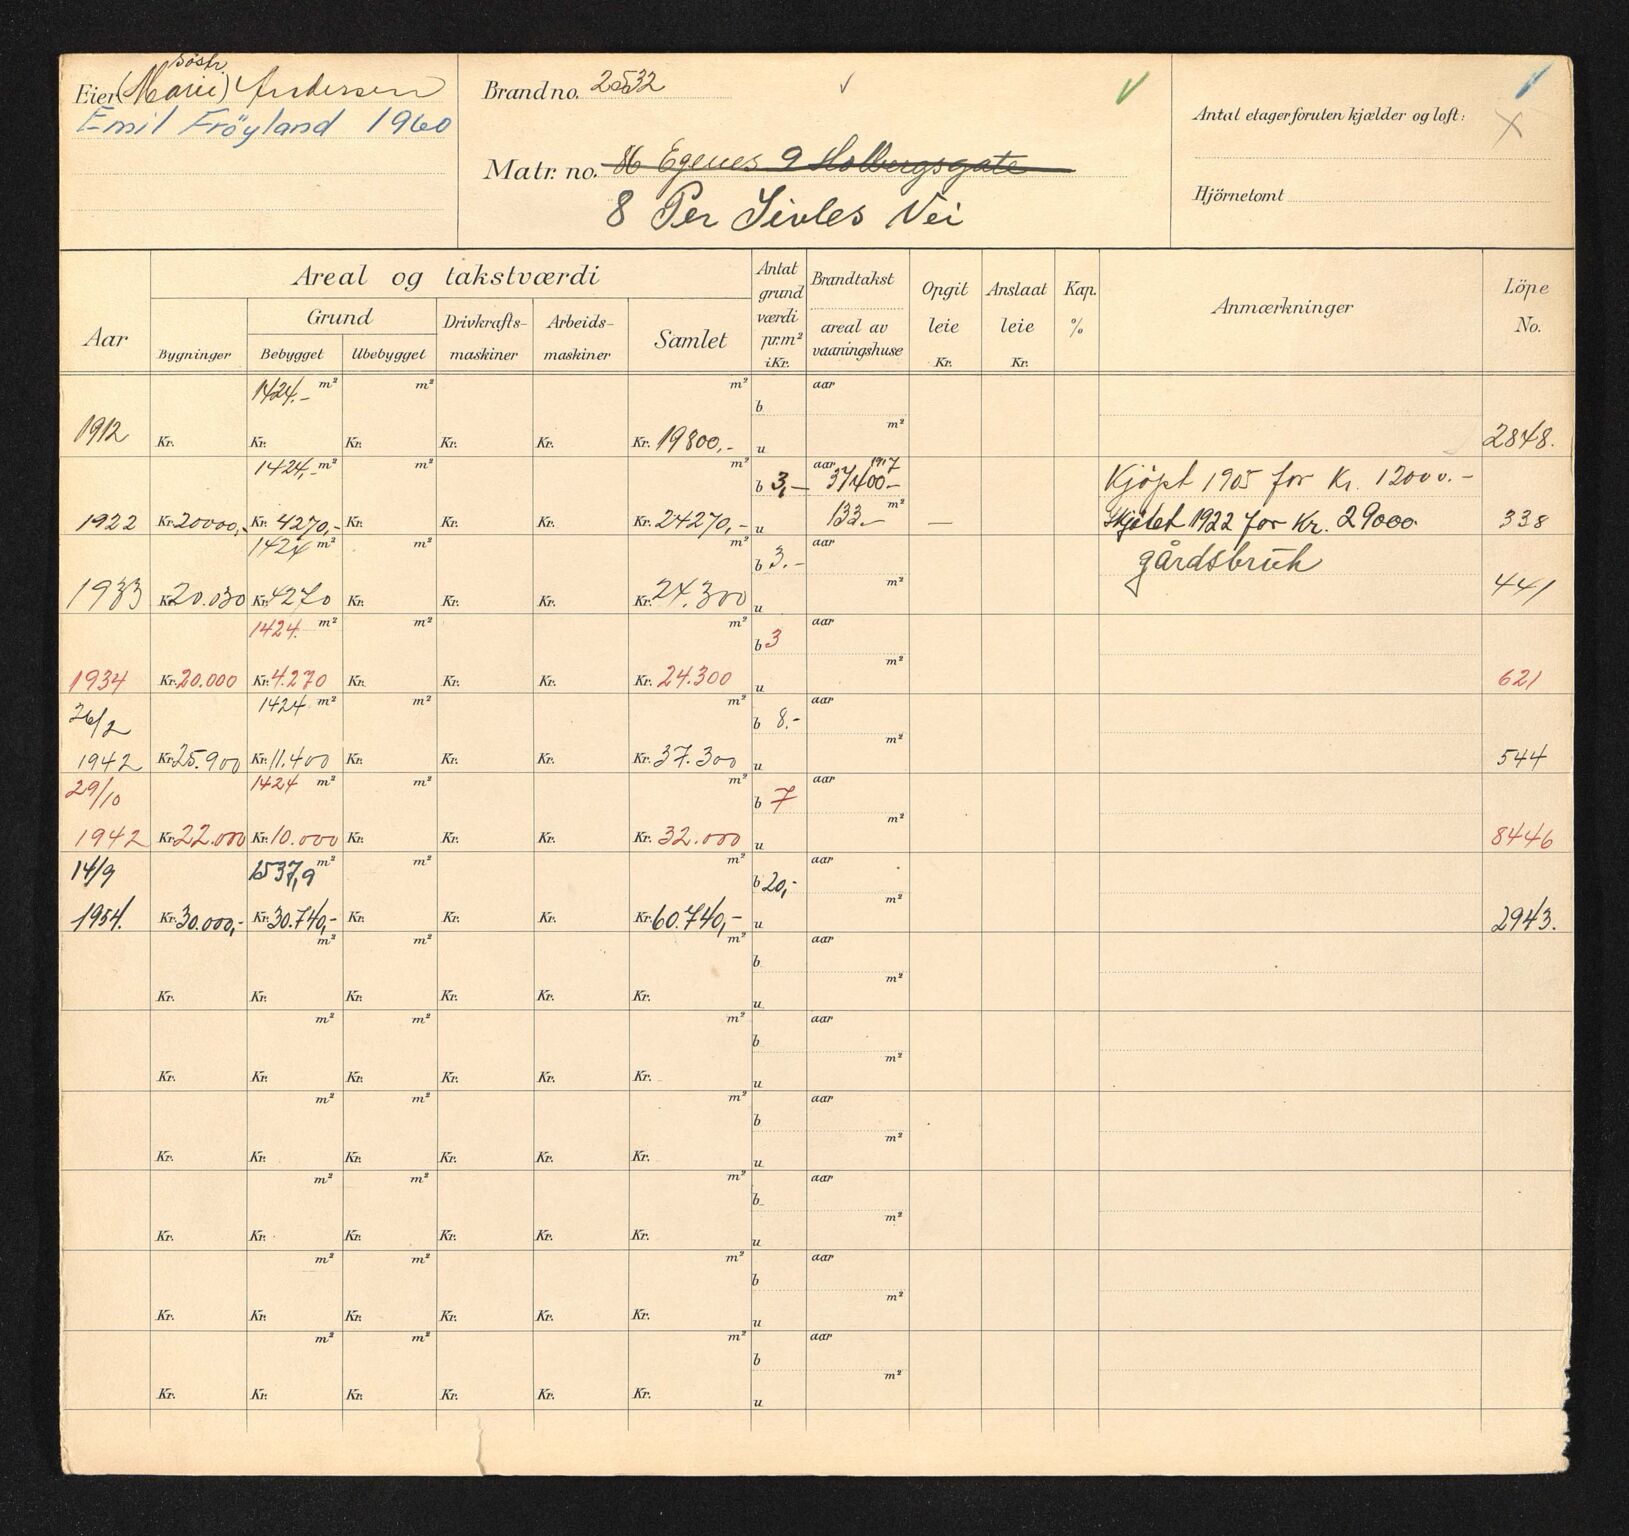 Söstr.
Eier (Marie) Andersen
Emil Fröyland 1960
Brand no. 2532
Matr. no. Egenes 9 Holbergsgate
8 Per Sivles Vei
Antal etager foruten kjælder og loft:
Hjörnetomt
Aar
Areal og takstværdi
Bygninger
Grund
Bebygget
Ubebygget
Drivkrafts-maskiner
Arbeids-maskiner
Samlet
Antat grund værdi pr. m² i Kr.
Brandtakst
areal av vaaningshuse
Opgit leie Kr.
Anslaat leie Kr.
Kap. %
Anmærkninger
Löpe No.
1424.- m² m² m² b aar
1912 Kr. Kr. Kr. Kr. Kr. Kr. 19800,- u m² 2848.
1424,- m² m² m² b 3,- aar 1917 37400.- Kjöpt 1905 for Kr. 12000.-
1922 Kr. 20000,- Kr. 4270,- Kr. Kr. Kr. Kr. 24270,- u 133.- m² — Skjötet 1922 for Kr. 29000 338
1424 m² m² m² b 3.- aar gårdsbruk
1933 Kr. 20.030 Kr. 4270 Kr. Kr. Kr. Kr. 24.300 u m² 441
1424. m² m² m² b 3 aar
1934 Kr. 20.000 Kr. 4.270 Kr. Kr. Kr. Kr. 24.300 u m² 621
26/2 1424 m² m² m² b 8.- aar
1942 Kr. 25.900 Kr. 11.400 Kr. Kr. Kr. Kr. 37.300 u m² 544
29/10 1424 m² m² m² b 7 aar
1942 Kr. 22.000 Kr. 10.000 Kr. Kr. Kr. Kr. 32.000 u m² 8446
14/9 1537,9 m² m² m² b 20,- aar
1954. Kr. 30.000,- Kr. 30.740,- Kr. Kr. Kr. Kr. 60.740,- u m² 2943.
m² m² m² b aar
Kr. Kr. Kr. Kr. Kr. Kr. u m²
m² m² m² b aar
Kr. Kr. Kr. Kr. Kr. Kr. u m²
m² m² m² b aar
Kr. Kr. Kr. Kr. Kr. Kr. u m²
m² m² m² b aar
Kr. Kr. Kr. Kr. Kr. Kr. u m²
m² m² m² b aar
Kr. Kr. Kr. Kr. Kr. Kr. u m²
m² m² m² b aar
Kr. Kr. Kr. Kr. Kr. Kr. u m²